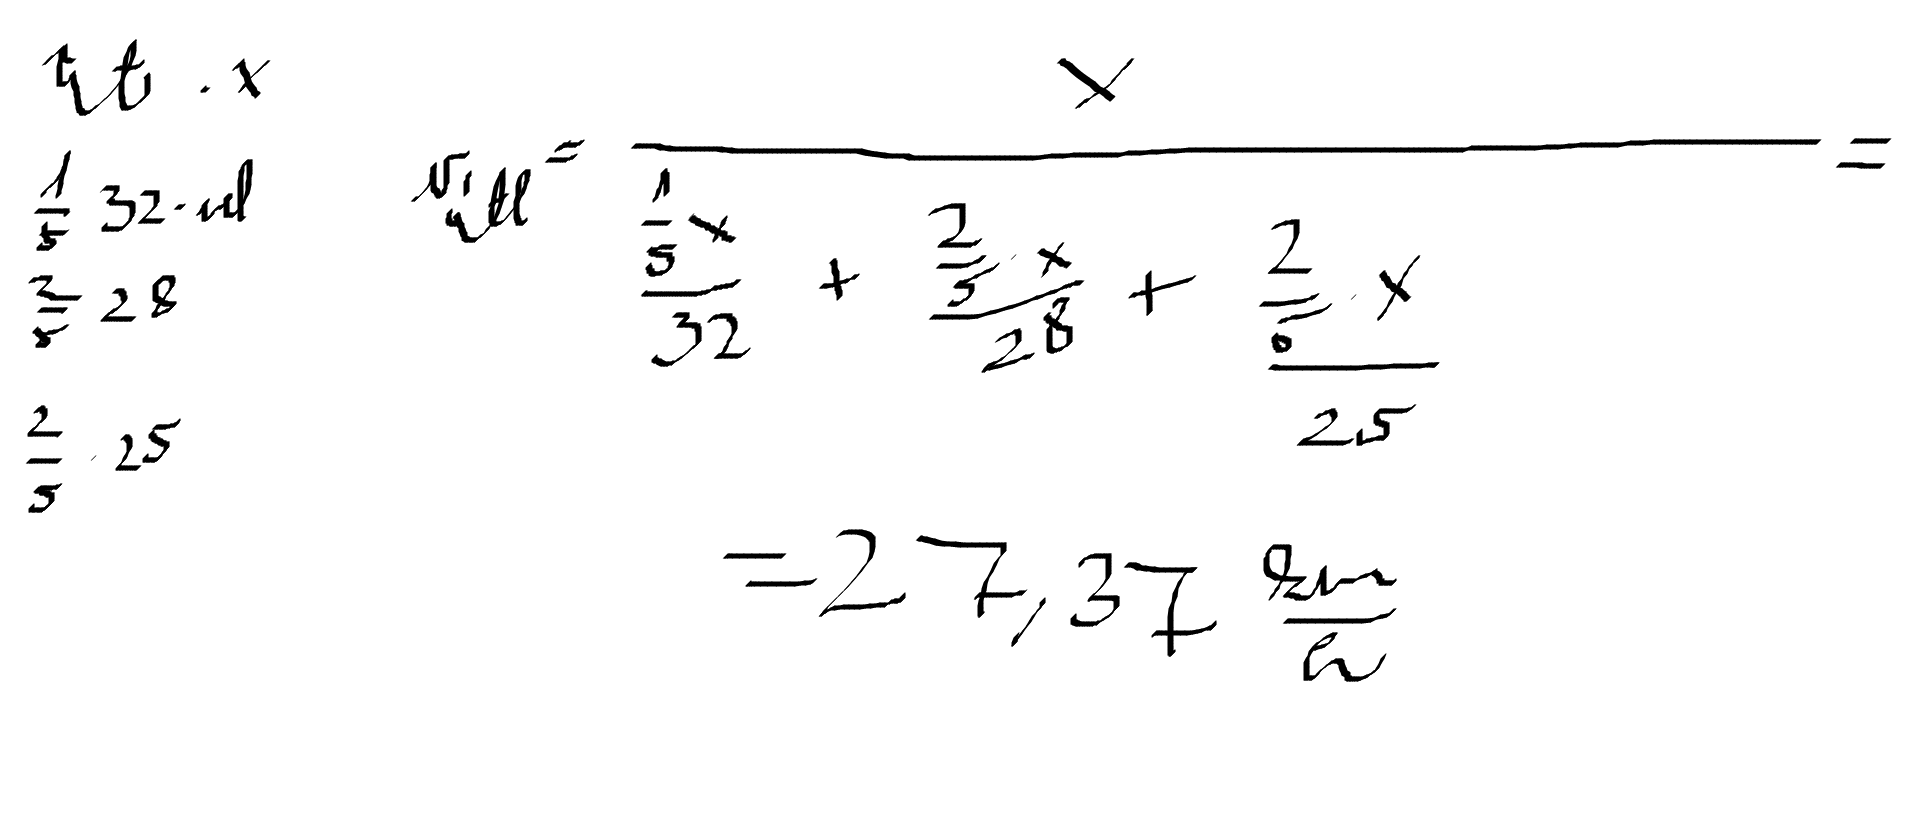 út: x
1/5 32-vel
2/5 28
2/5 · 25
v_átl = x / ( (1/5 x)/32 + (2/5 · x)/28 + (2/5 · x)/25 ) =
= 27,37 km/h